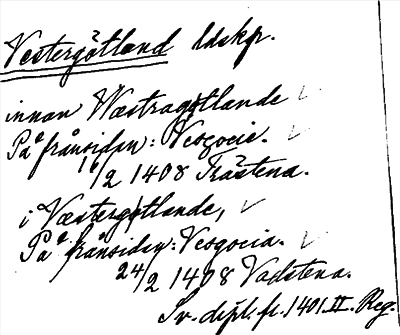 Vestergötland ldskp.
innan Wæstragøtlande
På frånsidan: Vesgocie.
16/2 1408 Tråstena.
i Væstergøtlande,
På frånsidan: Vesgocia.
24/2 1408 Vadstena.
Sv. dipl. fr. 1401. II. Reg.